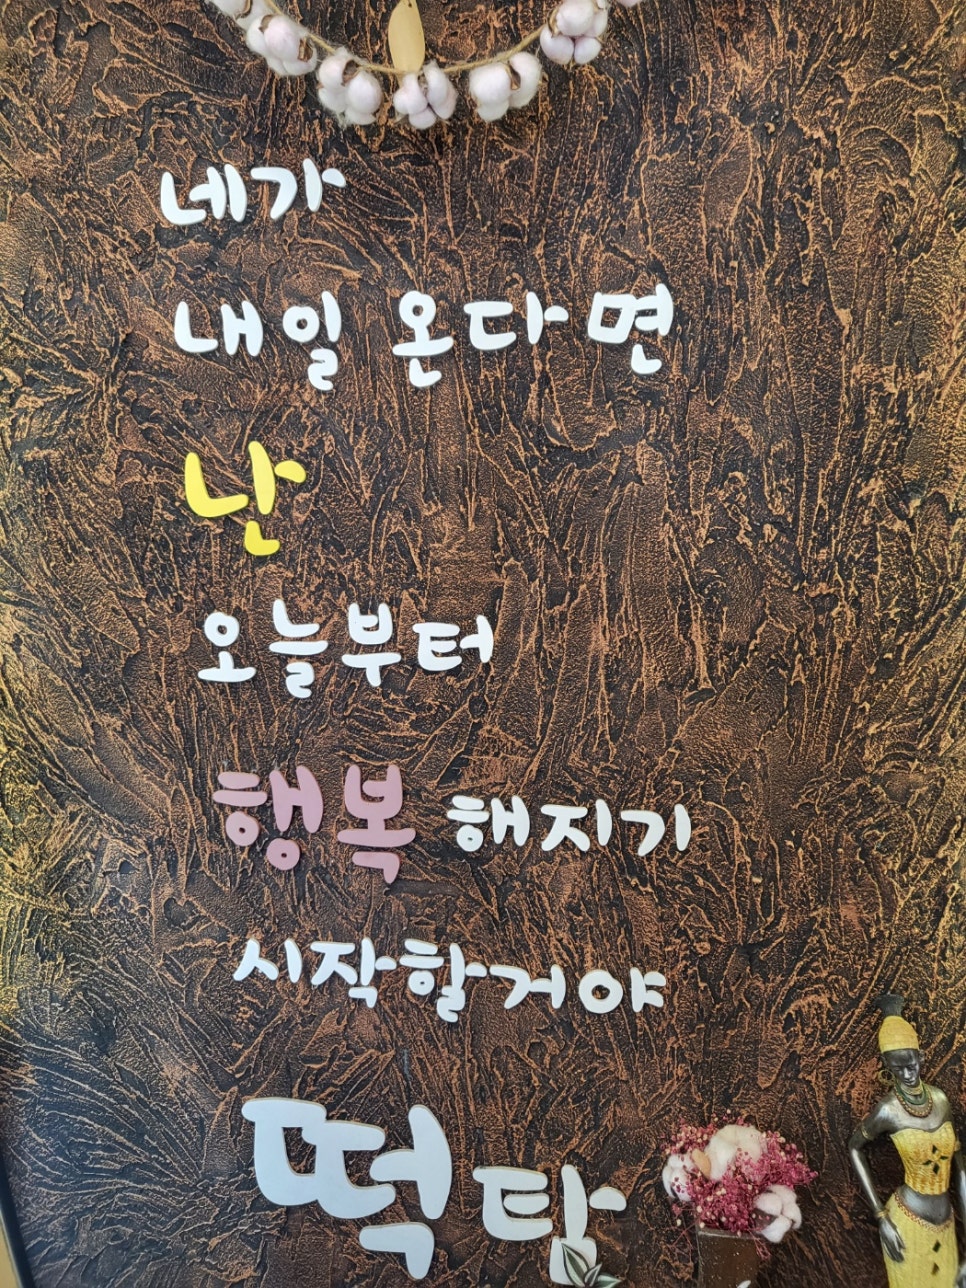 네가
내일 온다면
난
오늘부터
행복 해지기
시작할거야
떡탐